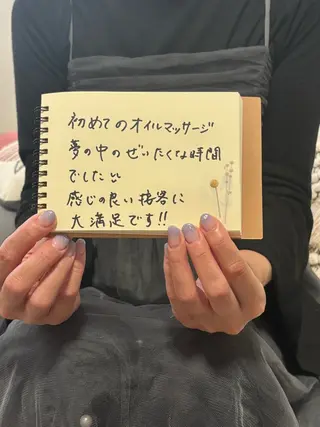 初めてのオイルマッサージ
夢の中のぜいたくな時間
でした
感じの良い接客に
大満足です!!